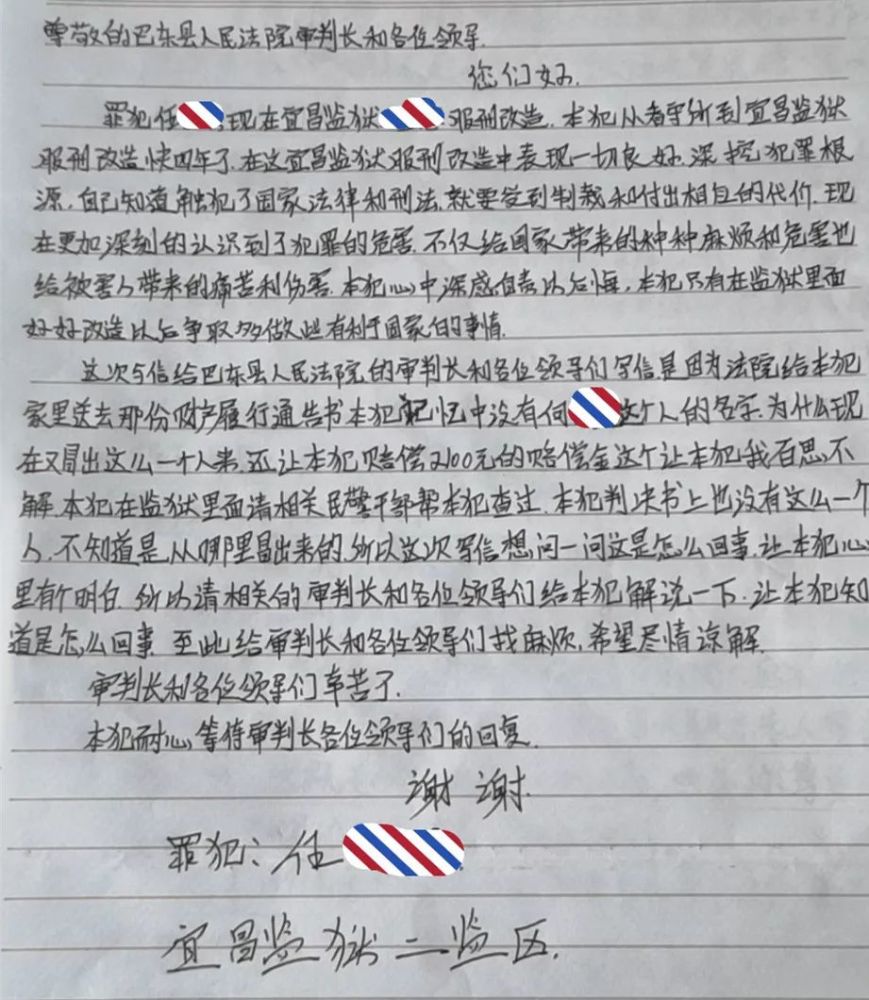 尊敬的巴东县人民法院审判长和各位领导.
您们好.
罪犯任 现在宜昌监狱 服刑改造. 本犯从看守所到宜昌监狱
服刑改造快四年了. 在这宜昌监狱服刑改造中表现一切良好. 深挖犯罪根
源. 自己知道触犯了国家法律和刑法, 就要受到制裁和付出相应的代价. 现
在更加深刻的认识到了犯罪的危害. 不仅给国家带来的种种麻烦和危害也
给被害人带来的痛苦和伤害. 本犯心中深感自责以后悔, 本犯只有在监狱里面
好好改造以后争取多做些有利于国家的事情.
这次写信给巴东县人民法院的审判长和各位领导们写信是因为法院给本犯
家里送去那份财产履行通告书本犯记忆中没有向 这个人的名字. 为什么现
在又冒出这么一个人来. 还让本犯赔偿2100元的赔偿金这个让本犯我百思不
解. 本犯在监狱里面请相关民警干部帮本犯查过. 本犯判决书上也没有这么一个
人. 不知道是从哪里冒出来的. 所以这次写信想问一问这是怎么回事. 让本犯心
里有个明白. 所以请相关的审判长和各位领导们给本犯解说一下. 让本犯知
道是怎么回事 至此给审判长和各位领导们找麻烦, 希望尽情谅解.
审判长和各位领导们辛苦了.
本犯耐心等待审判长各位领导们的回复.
谢谢.
罪犯: 任
宜昌监狱二监区.